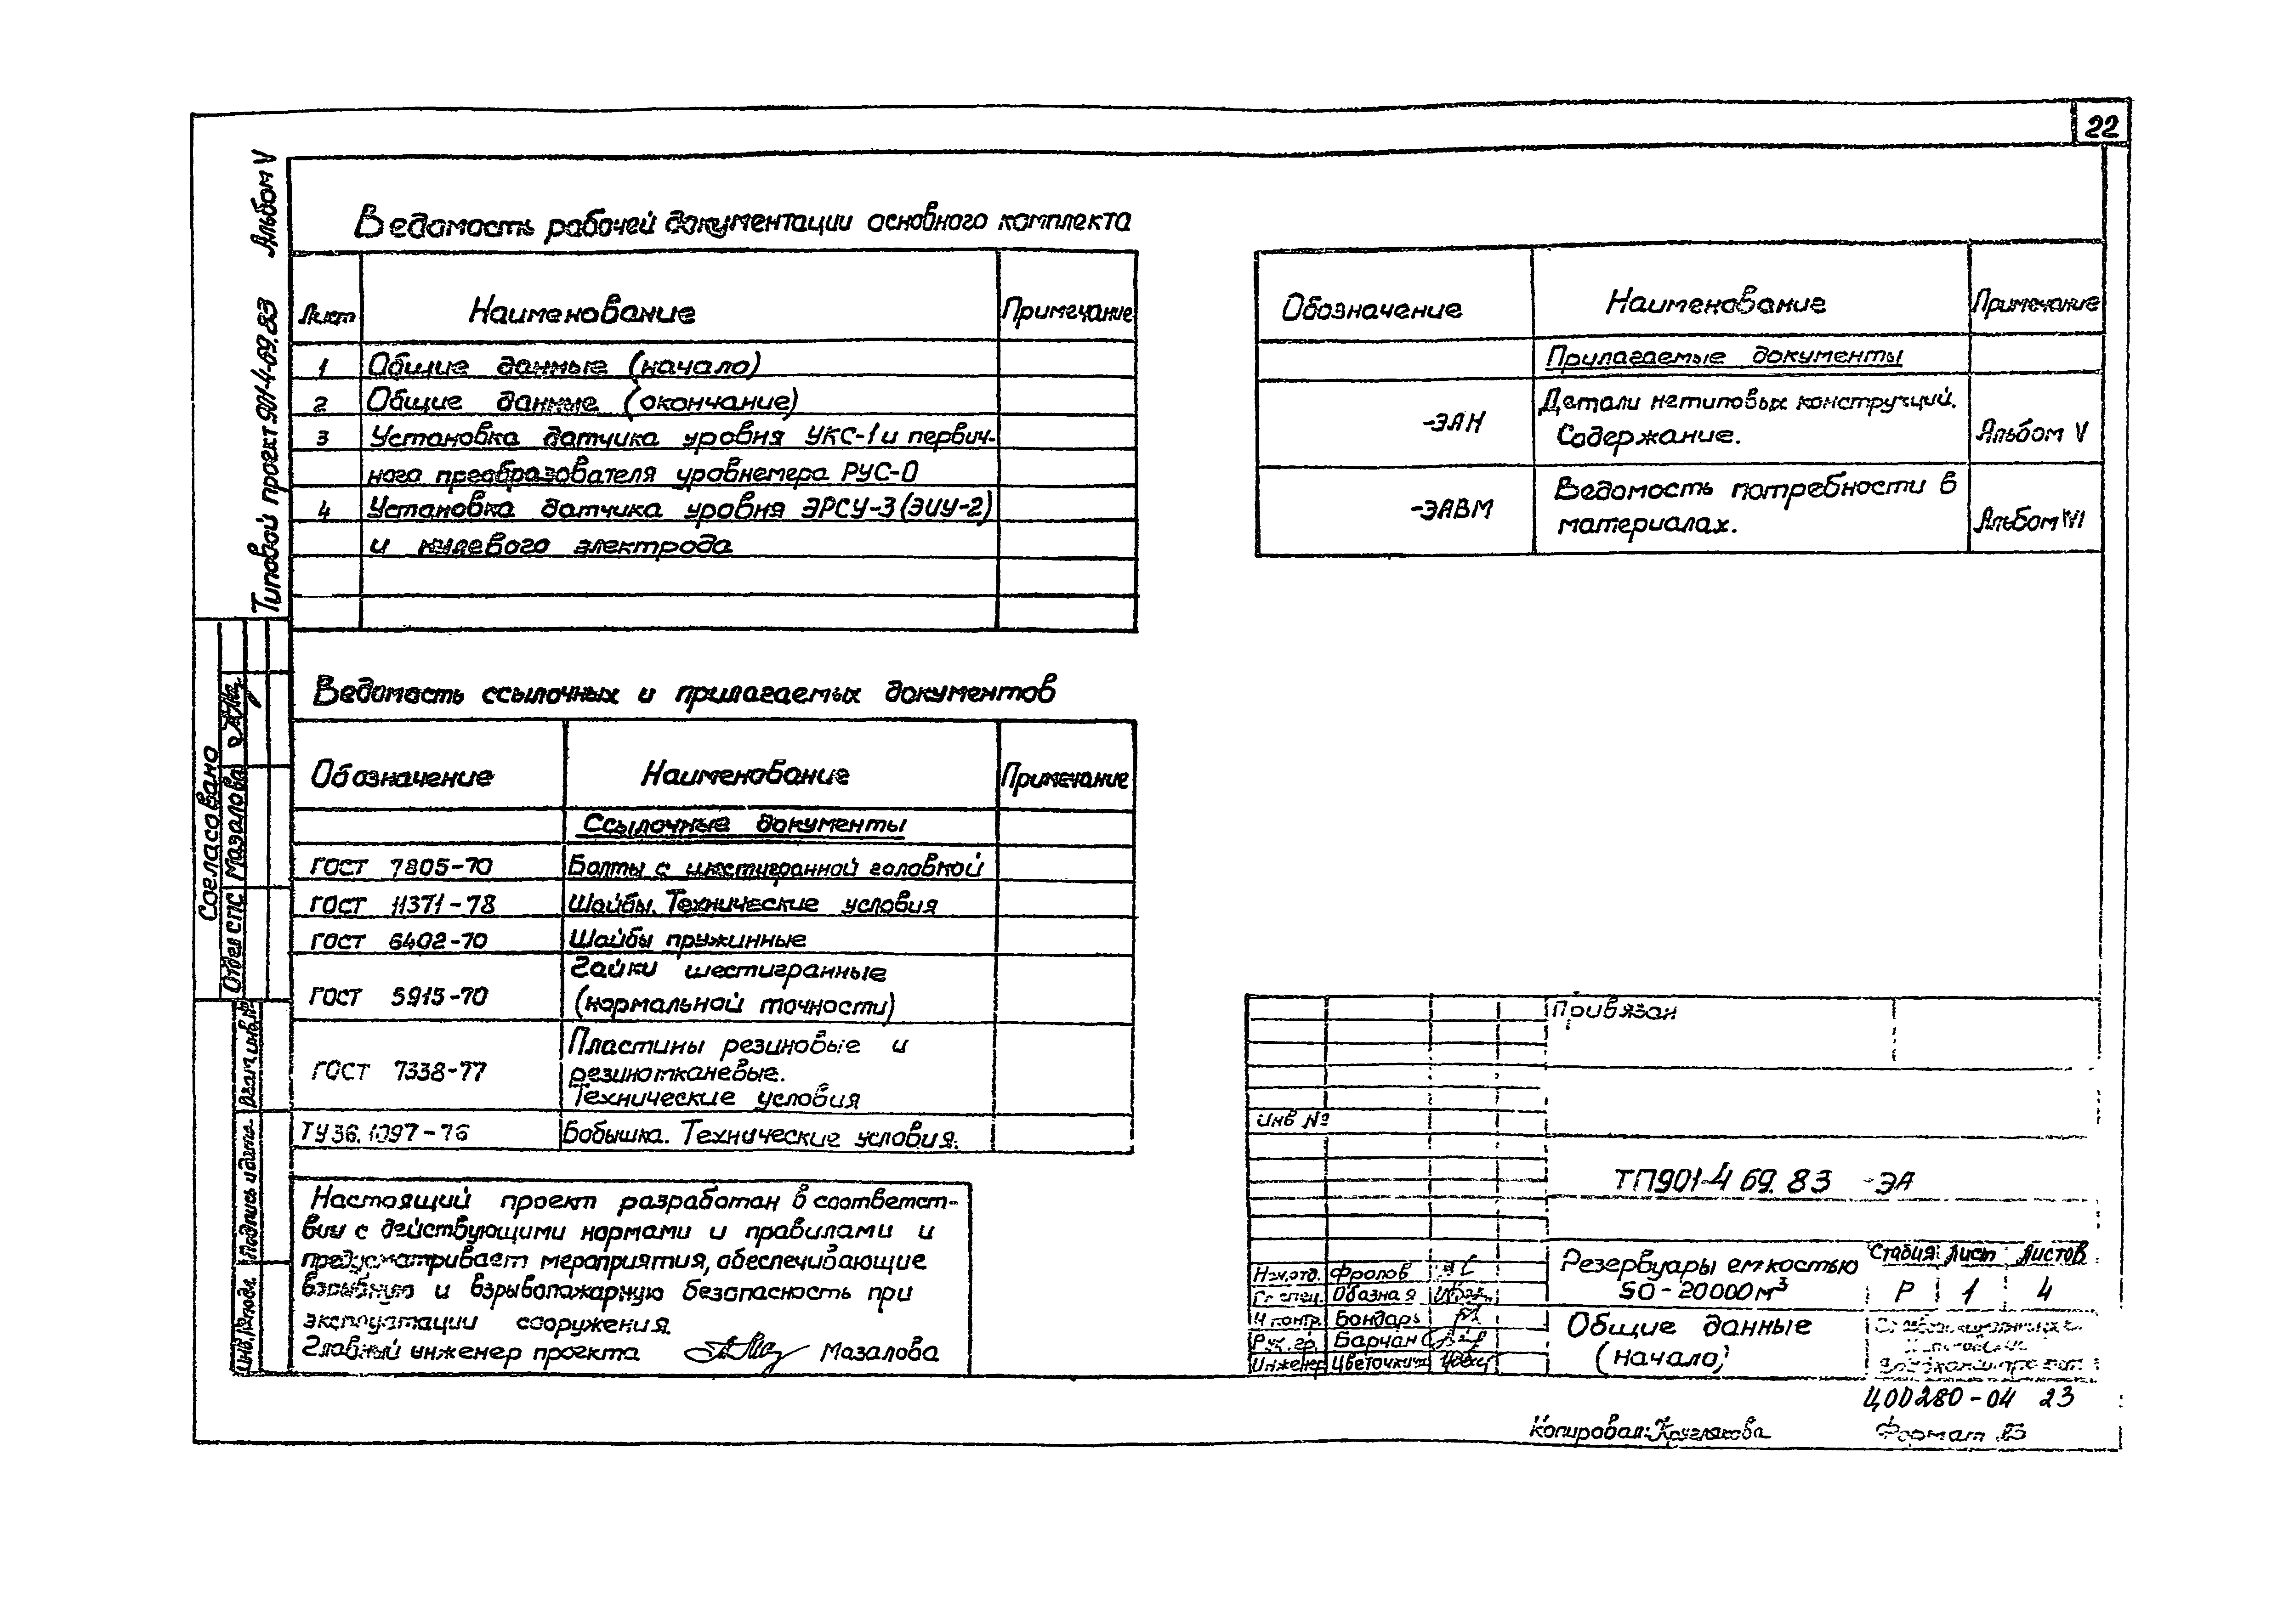 22
Типовой проект 901-4-69.83 Альбом V
Ведомость рабочей документации основного комплекта
Лист Наименование Примечание
1 Общие данные (начало)
2 Общие данные (окончание)
3 Установка датчика уровня УКС-1 и первич-
ного преобразователя уровнемера РУС-0
4 Установка датчика уровня ЭРСУ-3 (ЭИУ-2)
и нулевого электрода
Ведомость ссылочных и прилагаемых документов
Обозначение Наименование Примечание
Ссылочные документы
ГОСТ 7805-70 Болты с шестигранной головкой
ГОСТ 11371-78 Шайбы. Технические условия
ГОСТ 6402-70 Шайбы пружинные
ГОСТ 5915-70 Гайки шестигранные
(нормальной точности)
ГОСТ 7338-77 Пластины резиновые и
резинотканевые.
Технические условия
ТУ 36.1097-76 Бобышка. Технические условия.
Настоящий проект разработан в соответст-
вии с действующими нормами и правилами и
предусматривает мероприятия, обеспечивающие
взрывную и взрывопожарную безопасность при
эксплуатации сооружения.
Главный инженер проекта Мазалова
Обозначение Наименование Примечание
Прилагаемые документы
-ЭАН Детали нетиповых конструкций.
Содержание. Альбом V
-ЭАВМ Ведомость потребности в
материалах. Альбом VI
Согласовано
Отдел СПС Мазалова
Инв.№ подл. Подпись и дата Взам.инв.№
Привязан
Инв №
ТП901-4 69.83 -ЭА
Нач.отд. Фролов
Гл спец. Обазная
Н контр. Бондарь
Рук. гр. Барчан
Инженер Цветочкина
Резервуары емкостью
50-20000м³
Стадия Лист Листов
Р 1 4
Общие данные
(начало)
Ц00280-04 23
Копировал: Круглякова
Формат